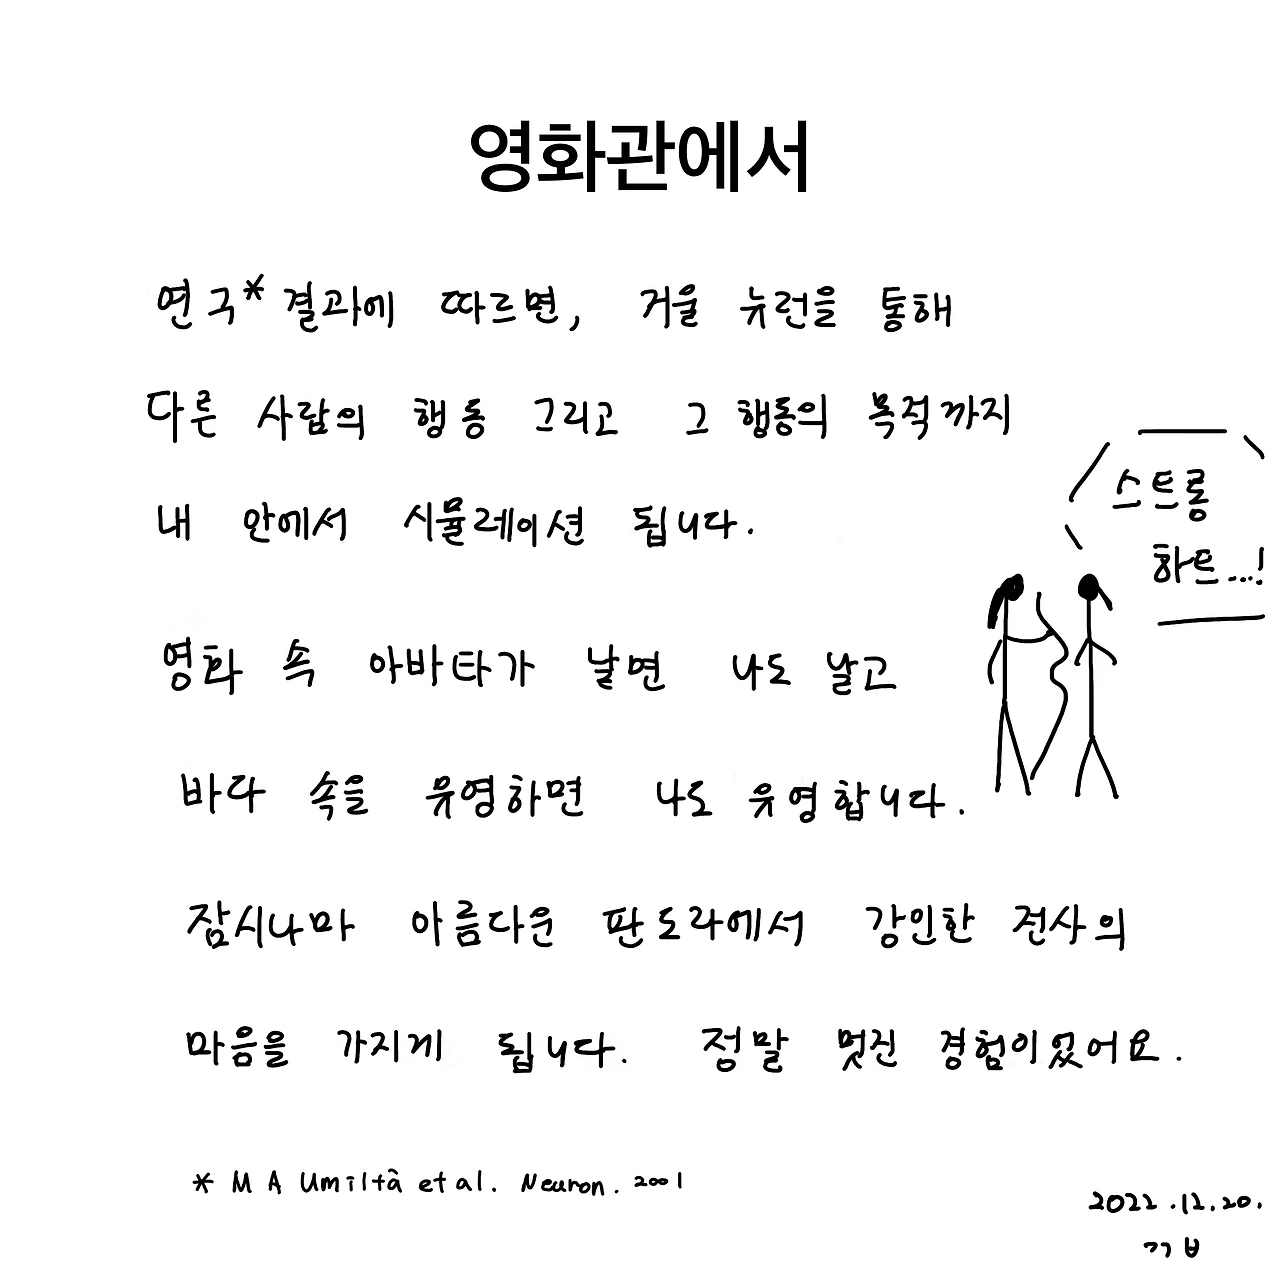 영화관에서
연구* 결과에 따르면, 거울 뉴런을 통해
다른 사람의 행동 그리고 그 행동의 목적까지
내 안에서 시뮬레이션 됩니다.
스트롱
하트...!
영화 속 아바타가 날면 나도 날고
바다 속을 유영하면 나도 유영합니다.
잠시나마 아름다운 판도라에서 강인한 전사의
마음을 가지게 됩니다. 정말 멋진 경험이었어요.
* M A Umiltà et al. Neuron. 2001
2022.12.20.
ㄲㅂ